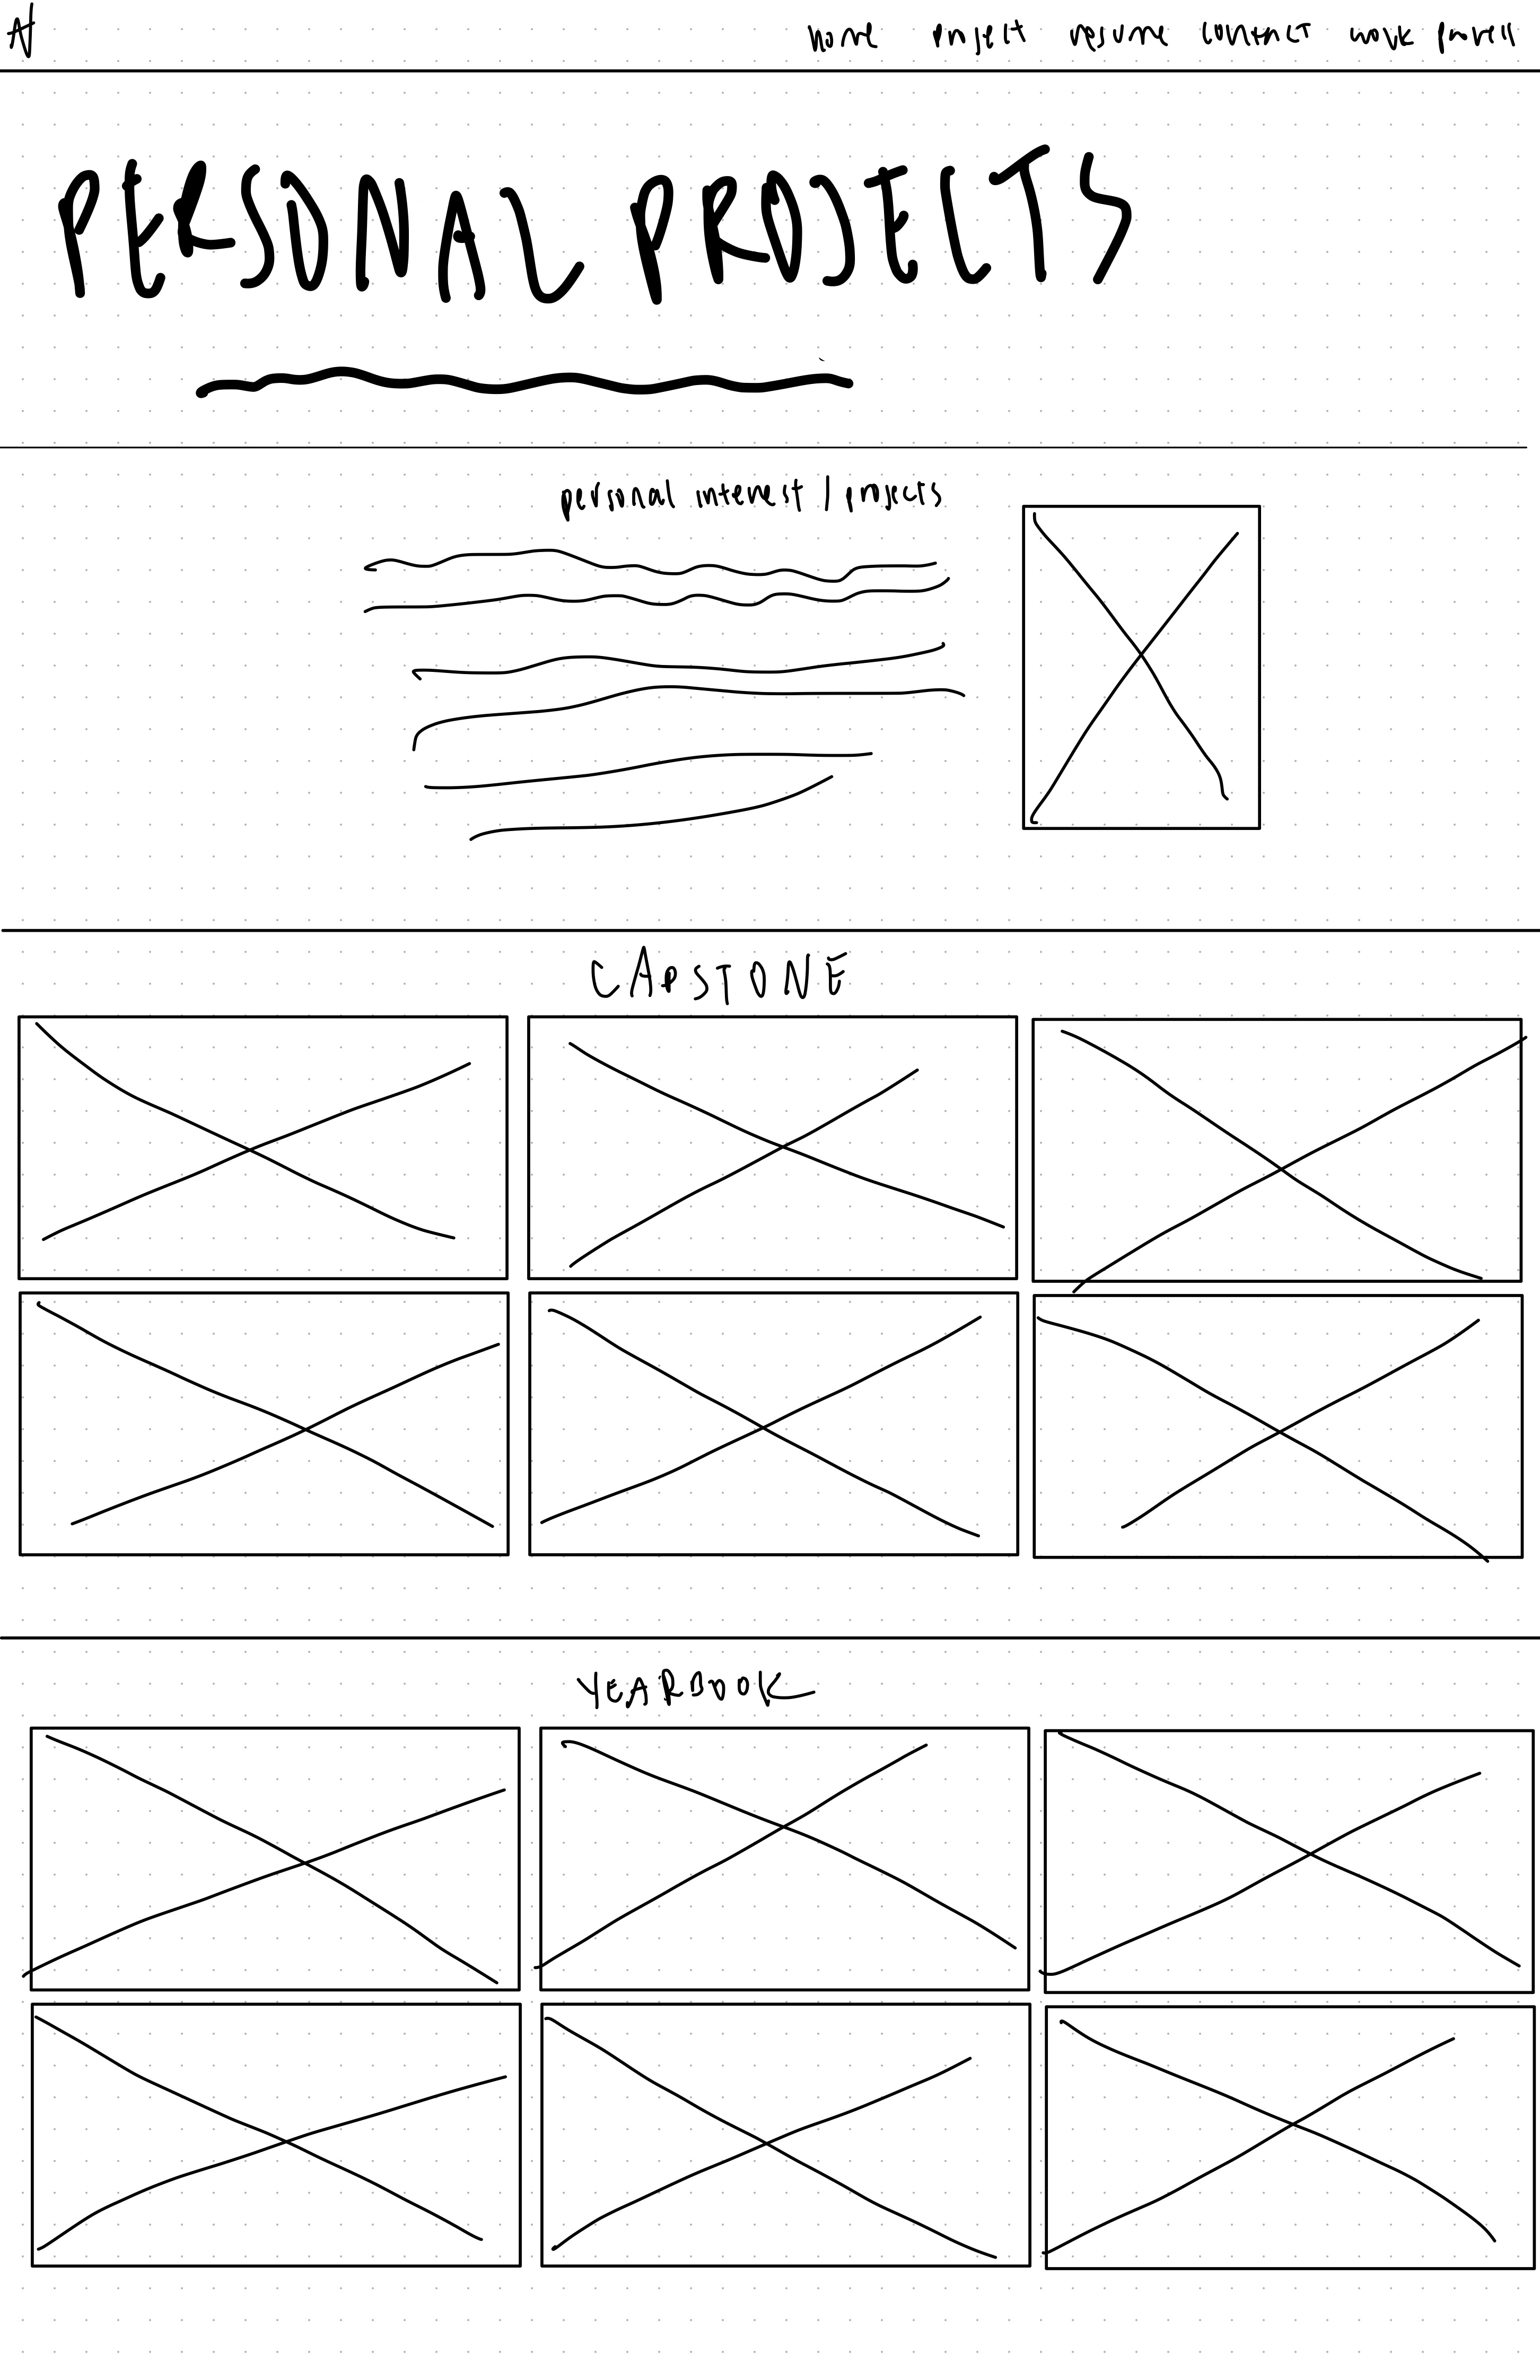 home project resume contact work
PERSONAL PROJECTS
personal interest / projects
CAPSTONE
YEARBOOK